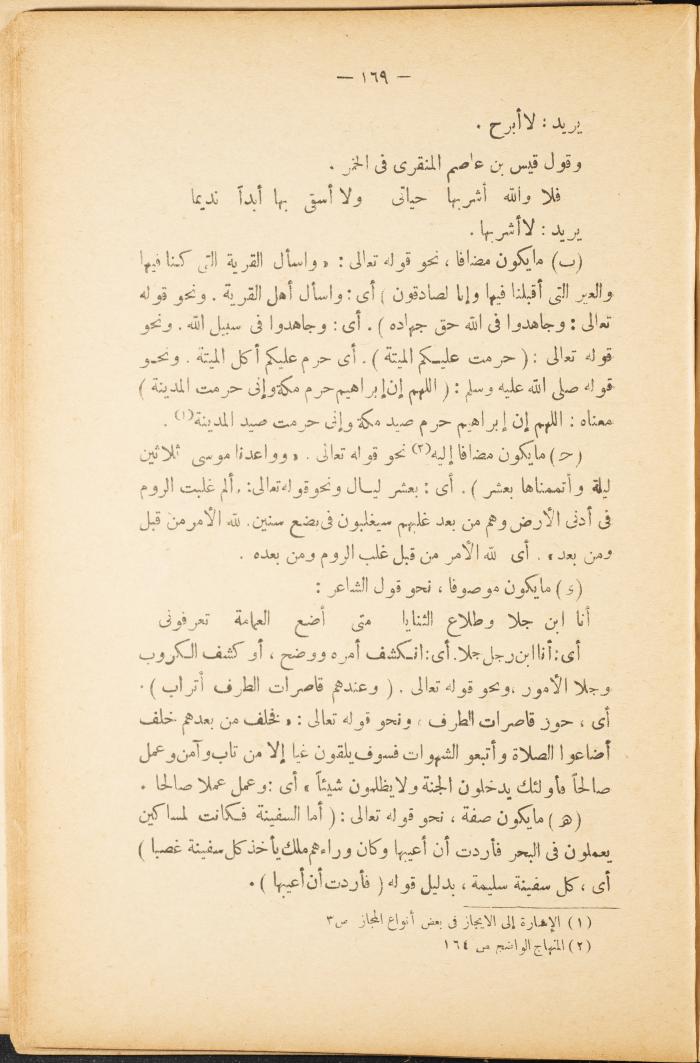 — ١٦٩ —
يريد : لا أبرح .
وقول قيس بن عاصم المنقرى فى الخمر .
فلا والله أشربها حياتى ولا أسقى بها أبدآ نديما
يريد : لا أشربها .
(ب) مايكون مضافا ، نحو قوله تعالى : « واسأل القرية التى كنا فيها
والعير التى أقبلنا فيها وإنا لصادقون ) أى : واسأل أهل القرية . ونحو قوله
تعالى : وجاهدوا فى الله حق جهاده ) . أى : وجاهدوا فى سبيل الله . ونحو
قوله تعالى : ( حرمت عليكم الميتة ) . أى حرم عليكم أكل الميتة . ونحو
قوله صلى الله عليه وسلم : ( اللهم إن إبراهيم حرم مكة وإنى حرمت المدينة )
معناه : اللهم إن إبراهيم حرم صيد مكة وإنى حرمت صيد المدينة(١) .
(ح) مايكون مضافا إليه(٢) نحو قوله تعالى . « وواعدنا موسى ثلاثين
ليلة وأتممناها بعشر ) . أى : بعشر ليال ونحو قوله تعالى : . ألم غلبت الروم
فى أدنى الأرض وهم من بعد غلبهم سيغلبون فى بضع سنين . لله الأمر من قبل
ومن بعد » . أى لله الأمر من قبل غلب الروم ومن بعده .
(ء) مايكون موصوفا ، نحو قول الشاعر :
أنا ابن جلا وطلاع الثنايا متى أضع العمامة تعرفونى
أى : أنا ابن رجل جلا . أى : انكشف أمره ووضح ، أو كشف الكروب
وجلا الأمور ، ونحو قوله تعالى . ( وعندهم قاصرات الطرف أتراب ) .
أى ، حور قاصرات الطرف ، ونحو قوله تعالى : « فخلف من بعدهم خلف
أضاعوا الصلاة وأتبعو الشهوات فسوف يلقون غيا إلا من تاب وآمن وعمل
صالحاً فأولئك يدخلون الجنة ولا يظلمون شيئاً » أى : وعمل عملا صالحا .
(ه) مايكون صفة ، نحو قوله تعالى : ( أما السفينة فكانت لمساكين
يعملون فى البحر فأردت أن أعيبها وكان وراءهم ملك يأخذ كل سفينة غصبا )
أى ، كل سفينة سليمة ، بدليل قوله ( فأردت أن أعيبها ) .
(١) الإشارة إلى الايجاز فى بعض أنواع المجاز ص ٣
(٢) المنهاج الواضح ص ١٦٤